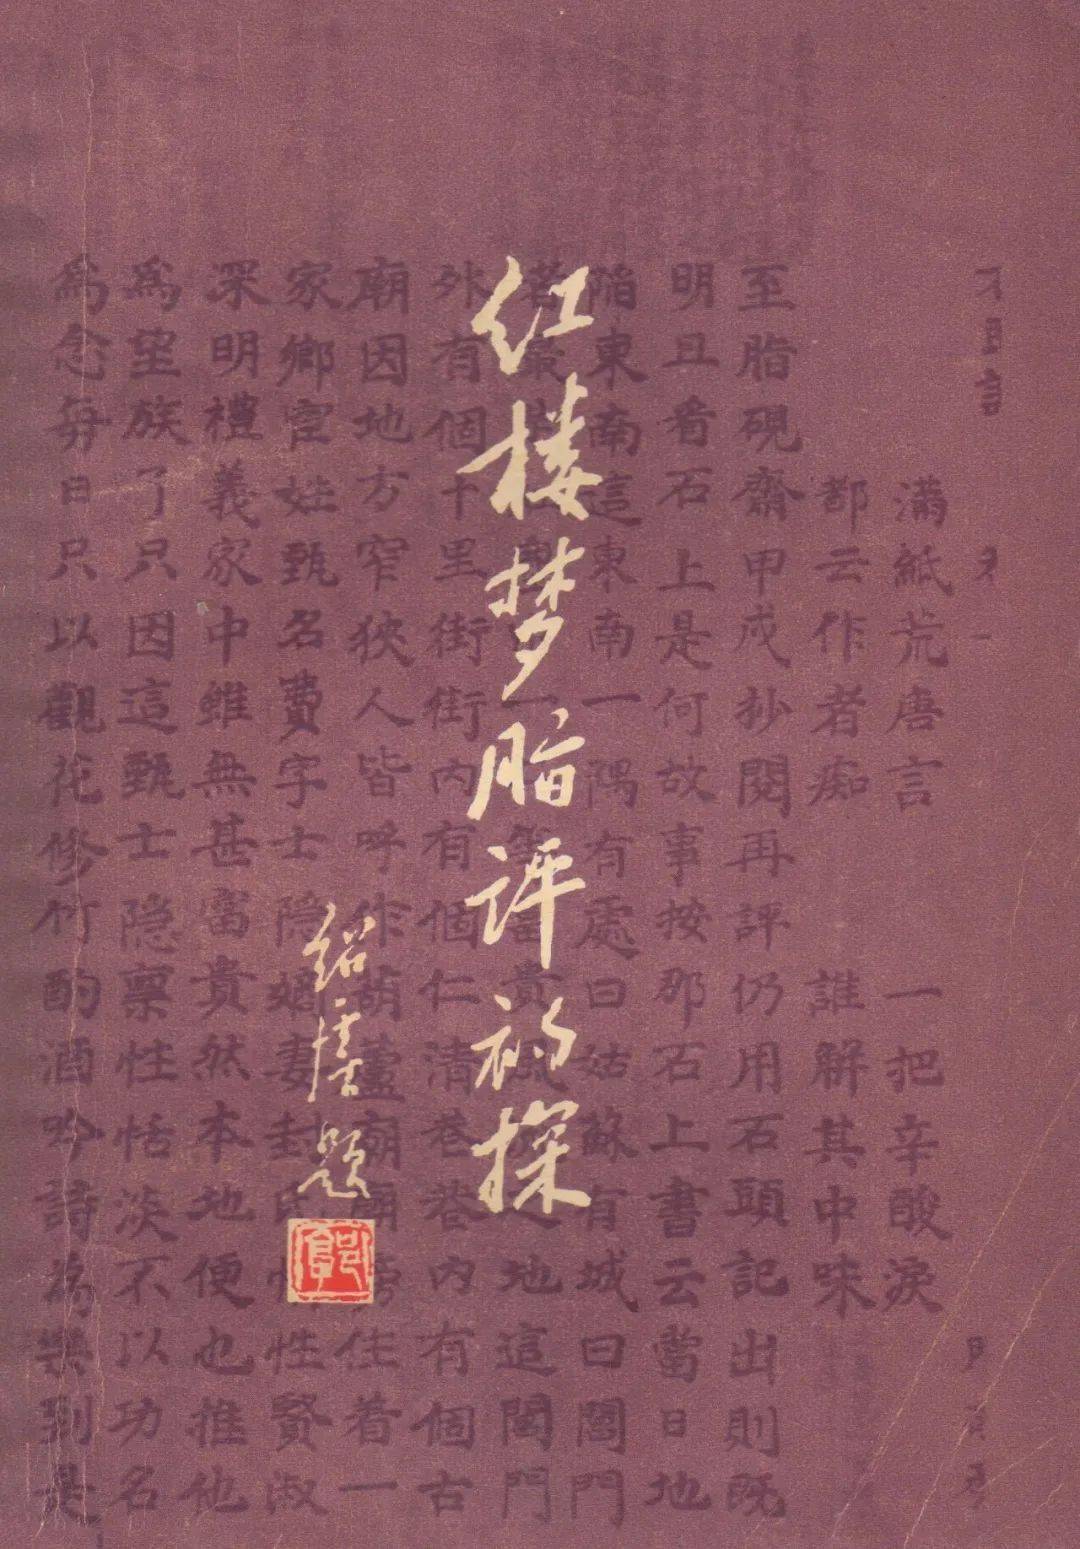 红楼梦脂评初探
绍虞题
郭
滿紙荒唐言 一把辛酸淚
都云作者痴 誰解其中味
至脂硯齋甲戌抄閱再評仍用石頭記出則既
明且看石上是何故事按那石上書云當日地
陷東南這東南一隅有處曰姑蘇有城曰閶門
者最 富貴風 之地這閶門
外有個十里街街內有個仁清巷巷內有個古
廟因地方窄狹人皆呼作葫蘆廟廟旁住着一
家鄉宦姓甄名費字士隱嫡妻封氏情性賢淑
深明禮義家中雖無甚富貴然本地便也推他
為望族了只因這甄士隱稟性恬淡不以功名
為念每日只以觀花修竹酌酒吟詩為樂到是